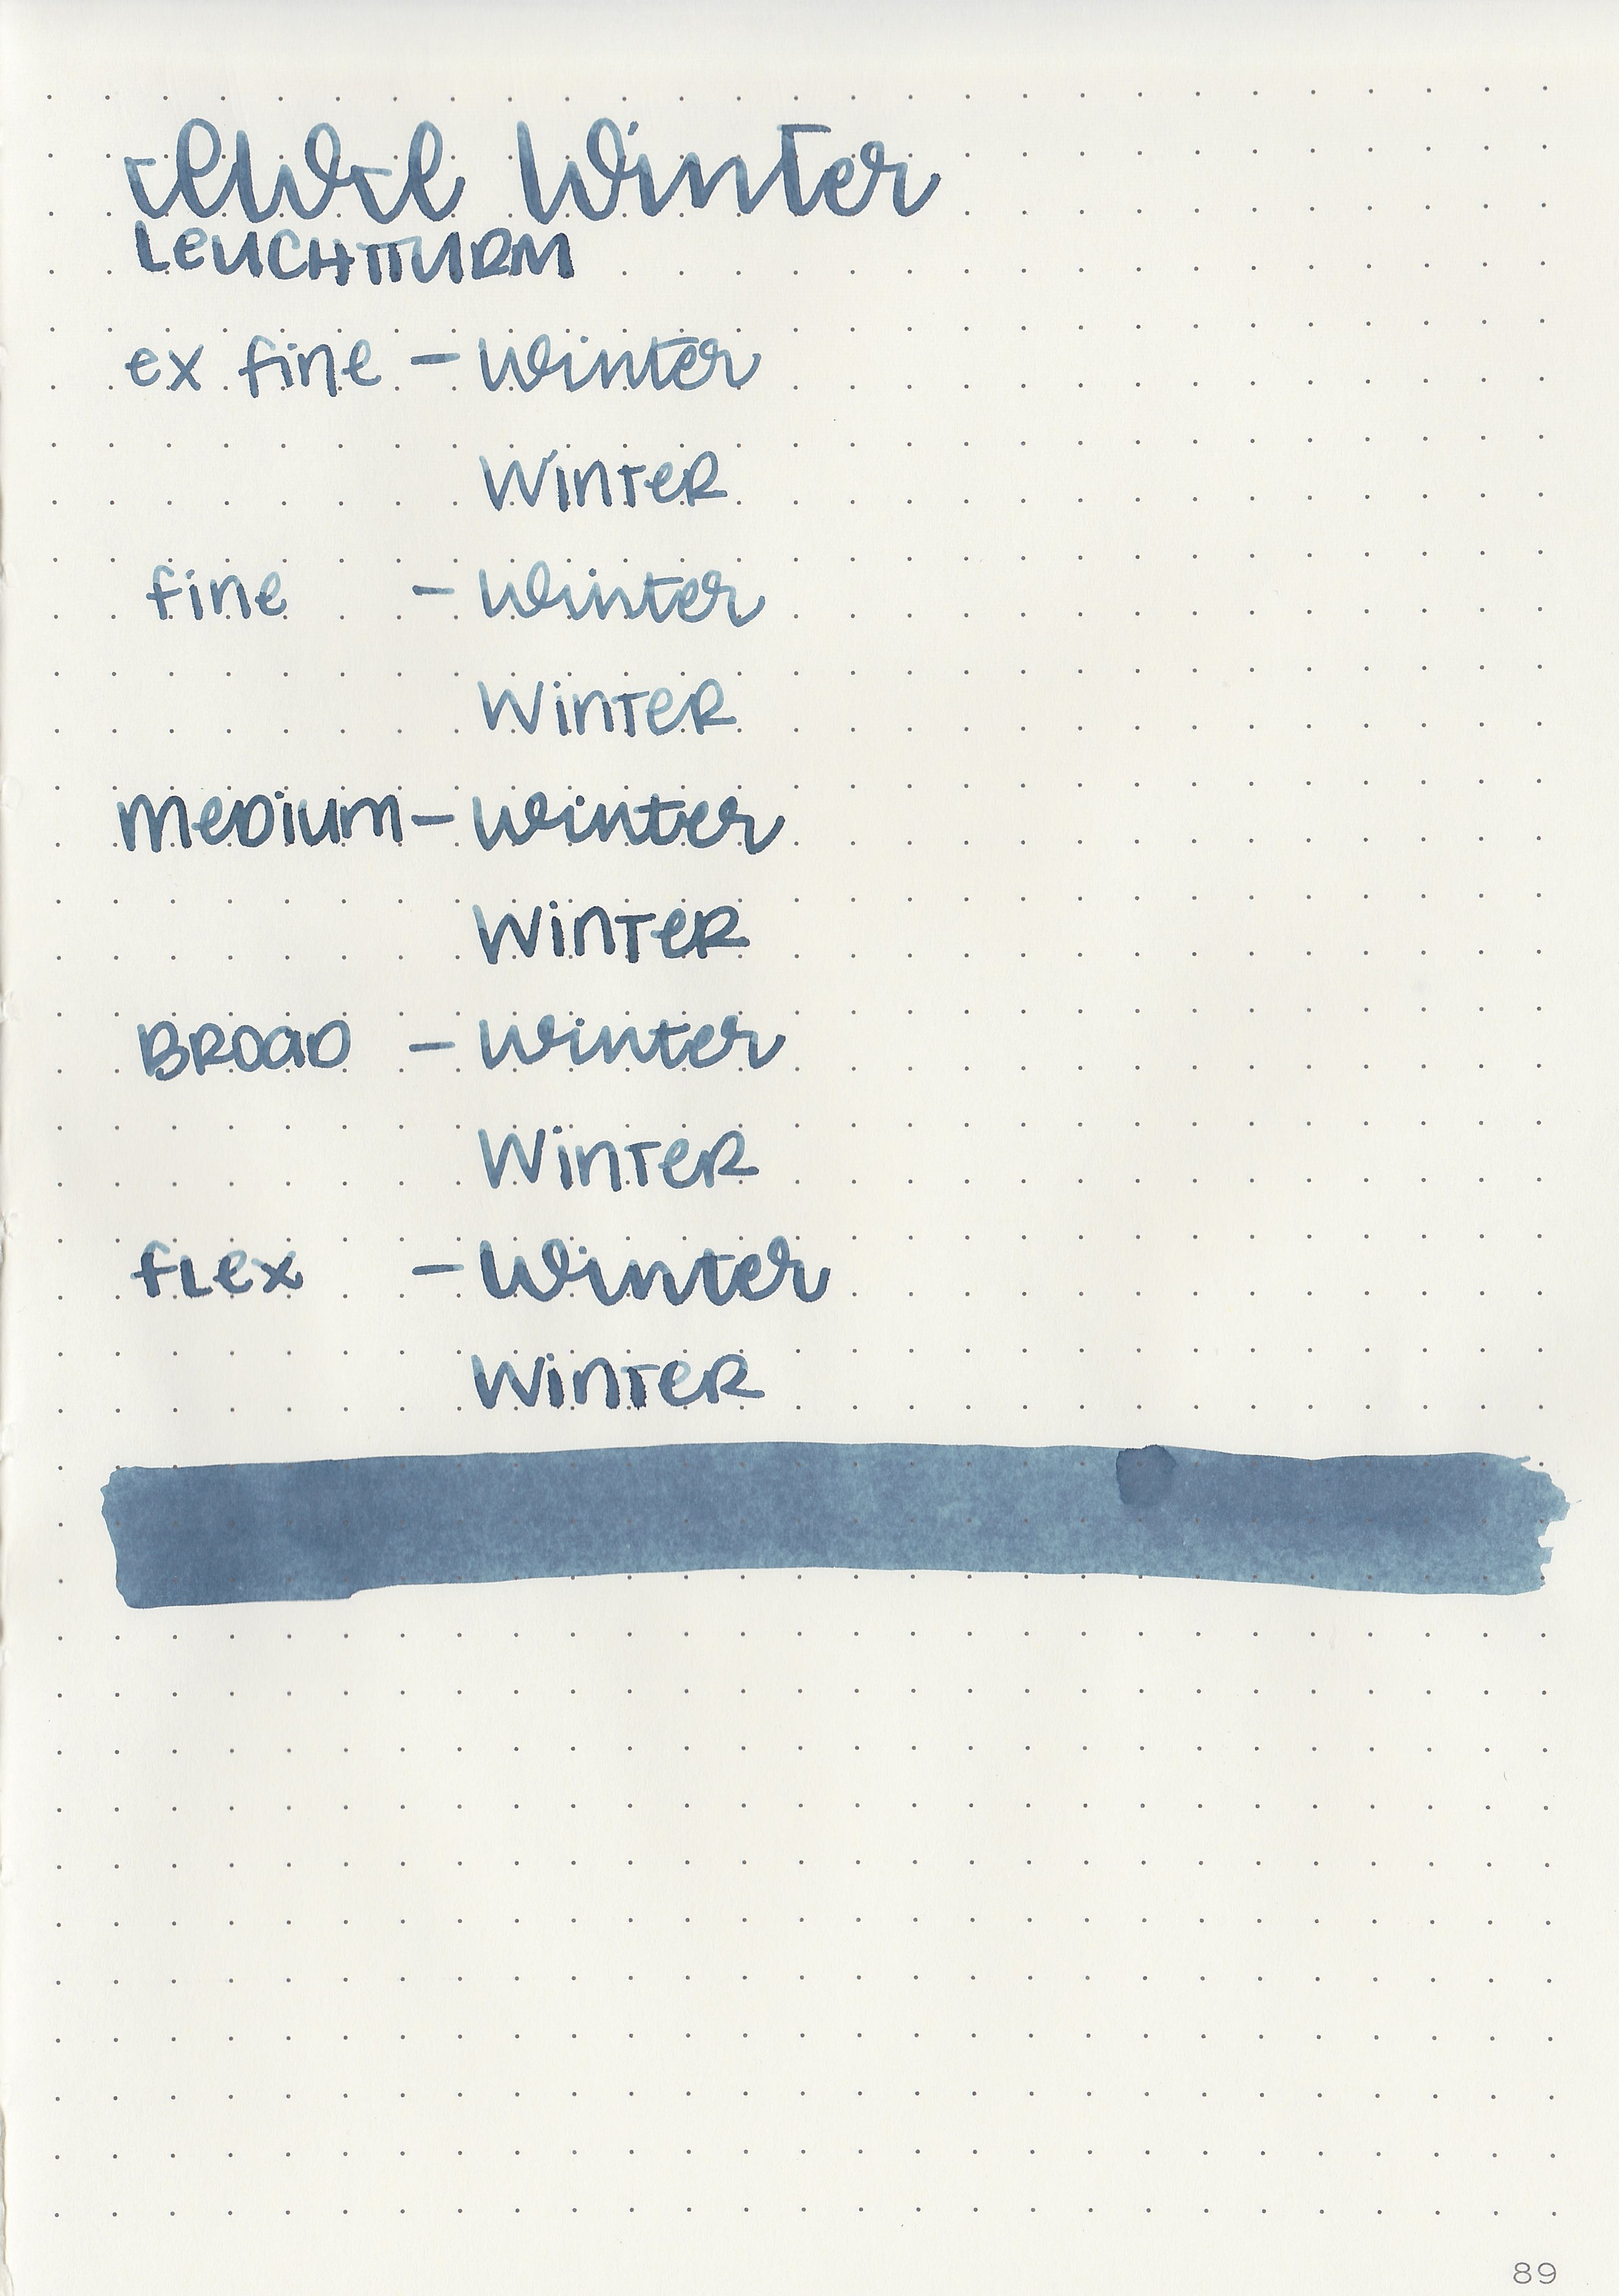 Winter
LeUCHTTURM
ex fine - Winter
WinTeR
fine - Winter
WinTeR
MeDiUM - Winter
WinTeR
BROaD - Winter
WinTeR
fLex - Winter
WinTeR
89